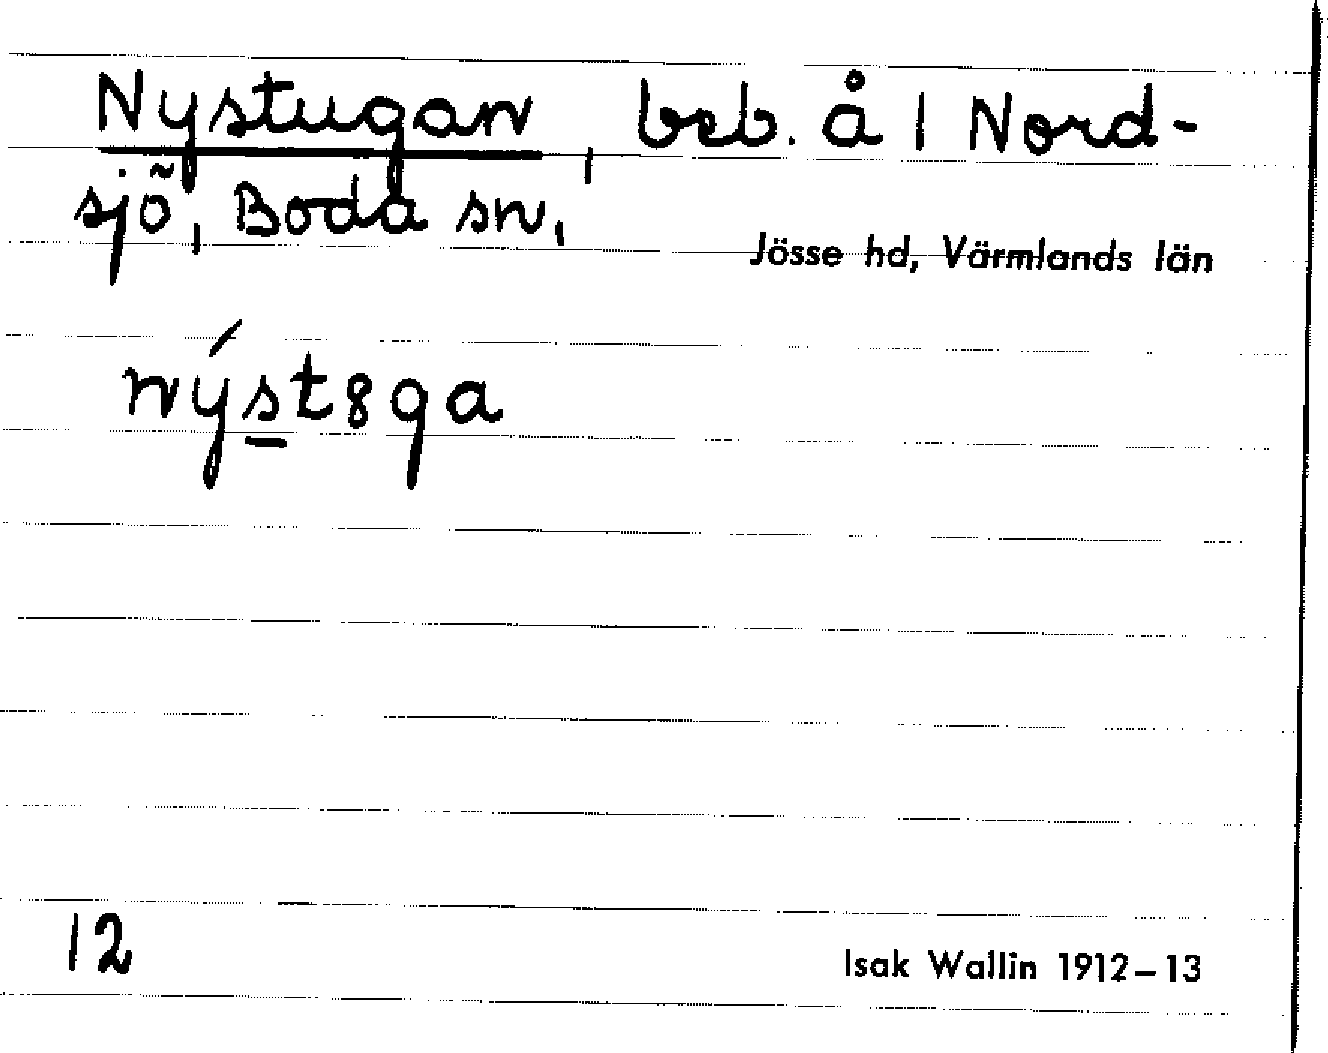 Nystugan, beb. å 1 Nord-
sjö, Boda sn,
Jösse hd, Värmlands län
nýst8ga
12
Isak Wallin 1912–13